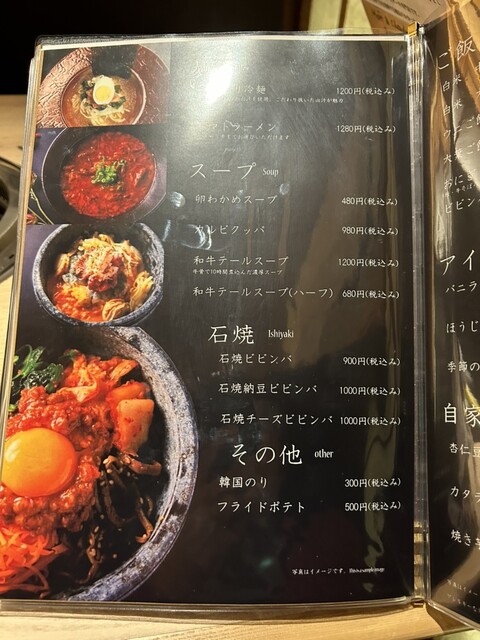 冷麺 1200円(税込み)
ラーメン 1280円(税込み)
スープ Soup
卵わかめスープ 480円(税込み)
カルビクッパ 980円(税込み)
和牛テールスープ 1200円(税込み)
牛骨で10時間煮込んだ濃厚スープ
和牛テールスープ(ハーフ) 680円(税込み)
石焼 Ishiyaki
石焼ビビンバ 900円(税込み)
石焼納豆ビビンバ 1000円(税込み)
石焼チーズビビンバ 1000円(税込み)
その他 other
韓国のり 300円(税込み)
フライドポテト 500円(税込み)
写真はイメージです。
ご飯
白米
白米
アイ
バニラ
ほうじ
季節の
自家
杏仁豆
カタラ
焼き芋